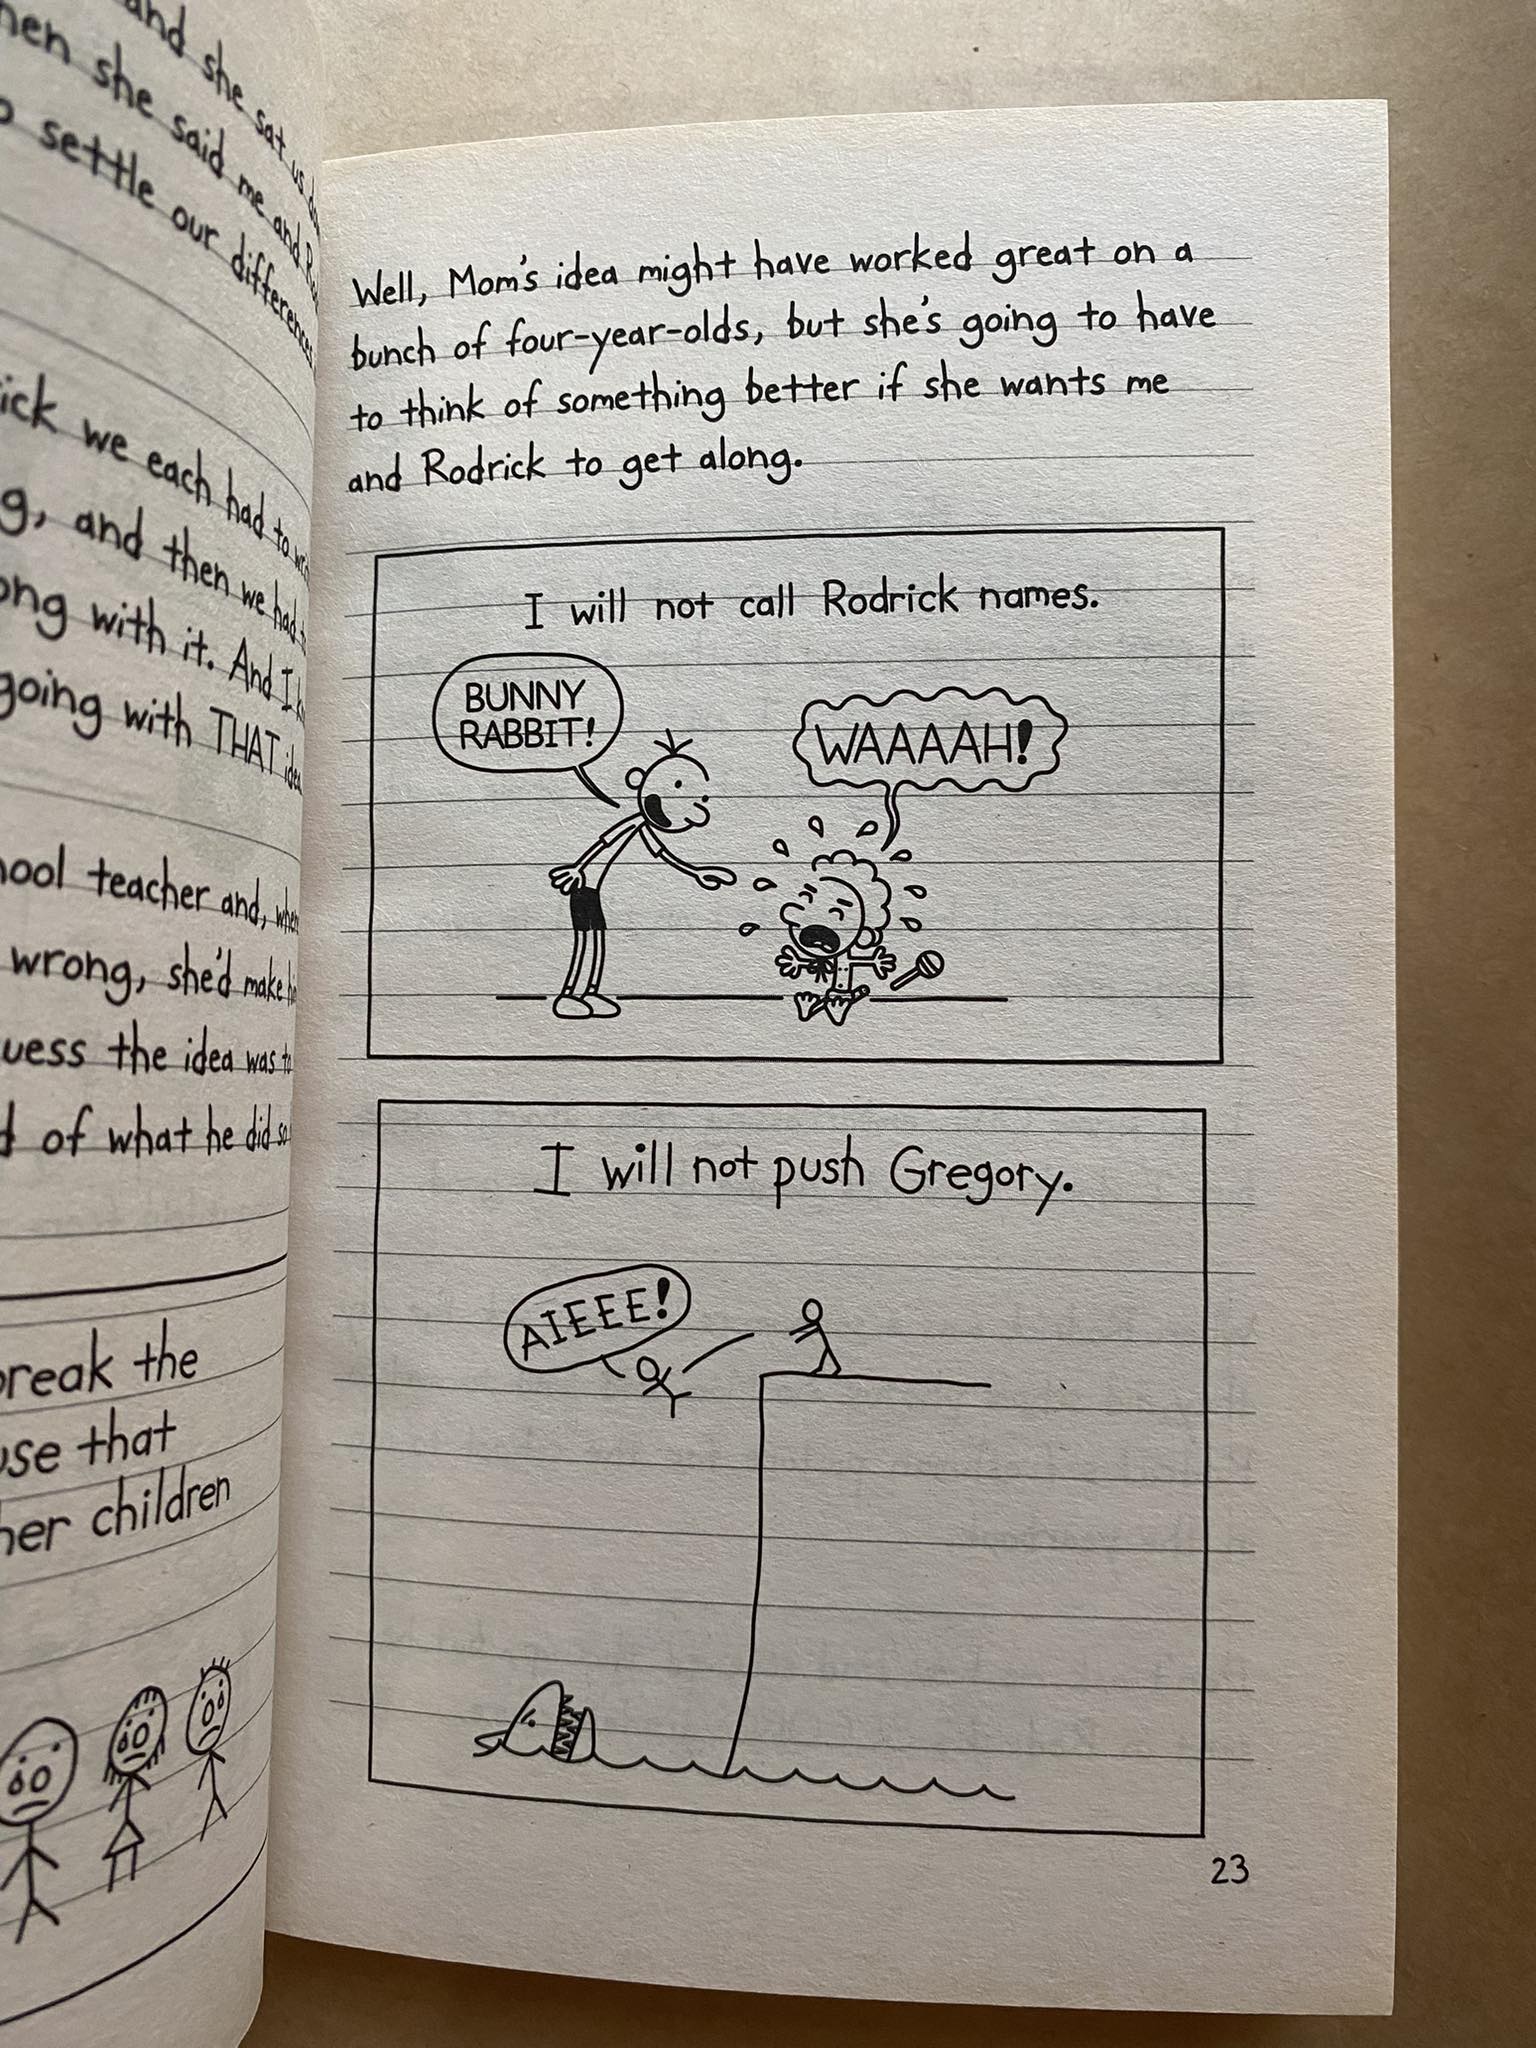 and she sat us
hen she said me and
settle our differences
ick we each had to
g, and then we had
ong with it. And I
going with THAT idea
ool teacher and, when
wrong, she'd make
uess the idea was to
of what he did so
break the
use that
her children
Well, Mom's idea might have worked great on a
bunch of four-year-olds, but she's going to have
to think of something better if she wants me
and Rodrick to get along.
I will not call Rodrick names.
BUNNY
RABBIT!
WAAAAH!
I will not push Gregory.
AIEEE!
23